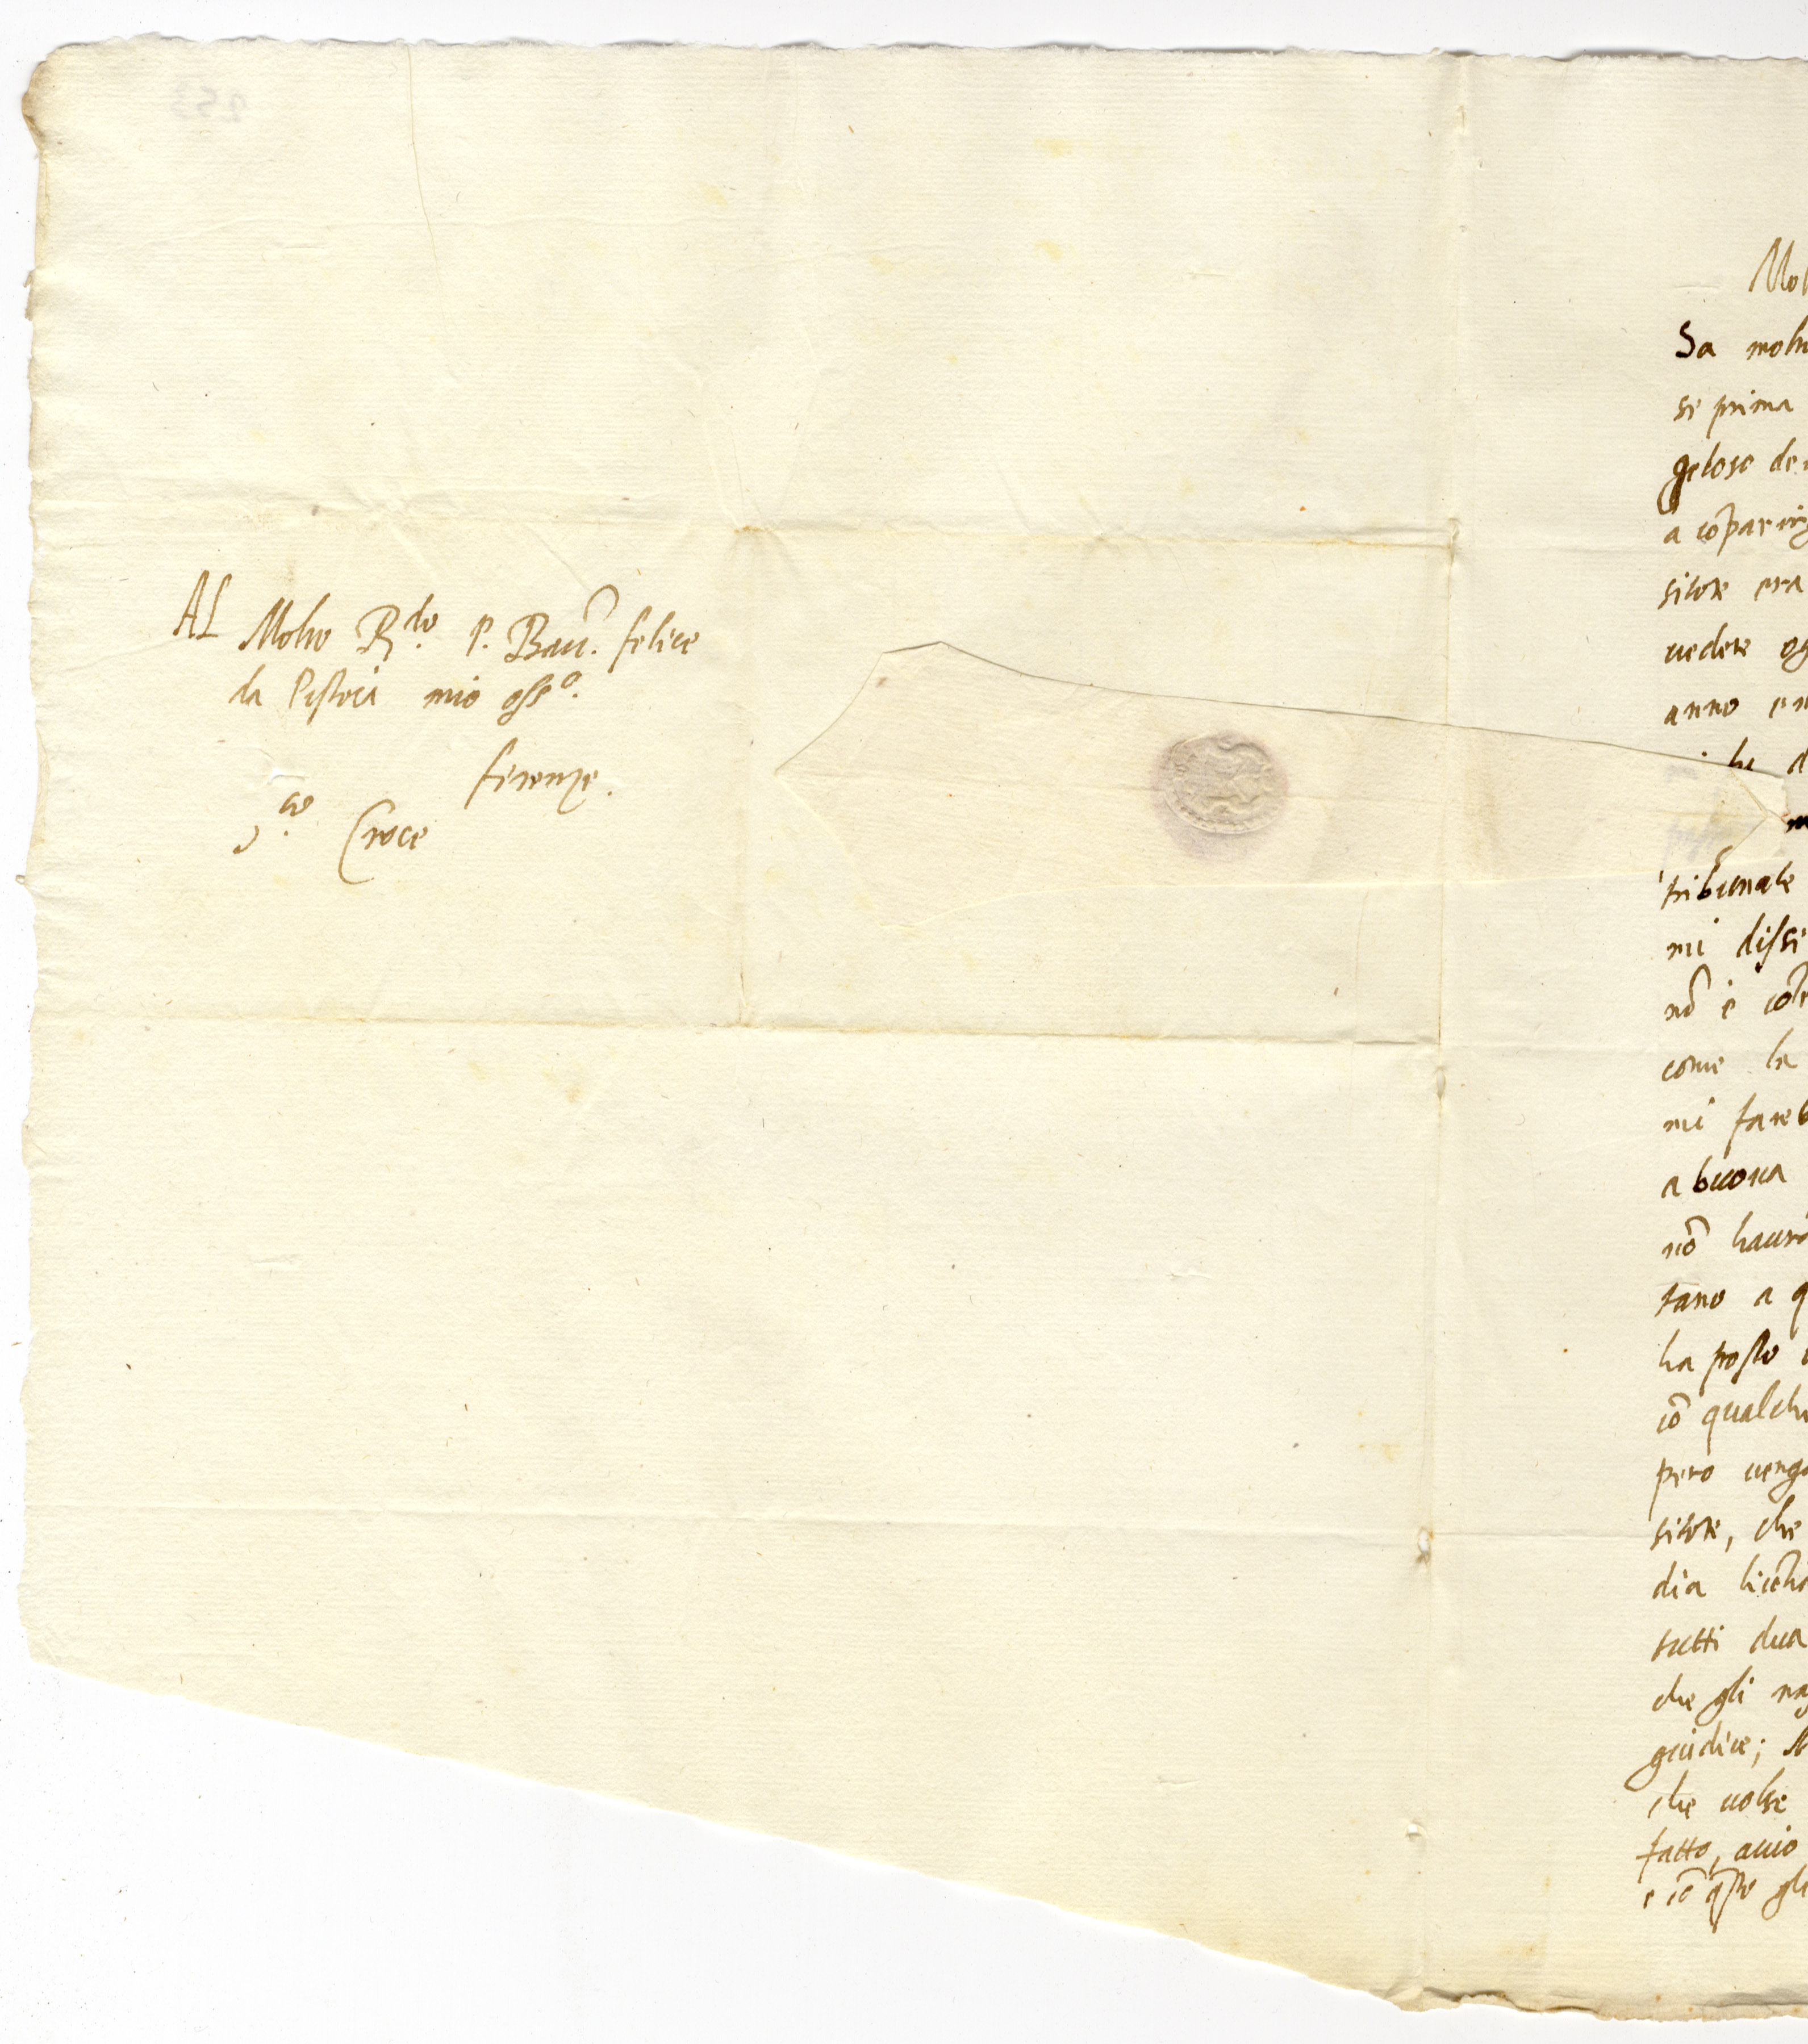 Al Molto R.do P. Bacc. felice
da Pistoia mio osso.
firenze.
Sta. Croce
Mol
Sa molt
si prima
geloso de
a cõparir
sitore era
uedere og
anno
d
tribunale
mi dissi
nõ è
come la
mi fareb
a buona
nõ haurò
tano a q
ha posto
cõ qualche
pero uenga
sitore, che
dia
tutti dua
che gli
giudice;
che uolse
fatto, acciò
e cõ gli